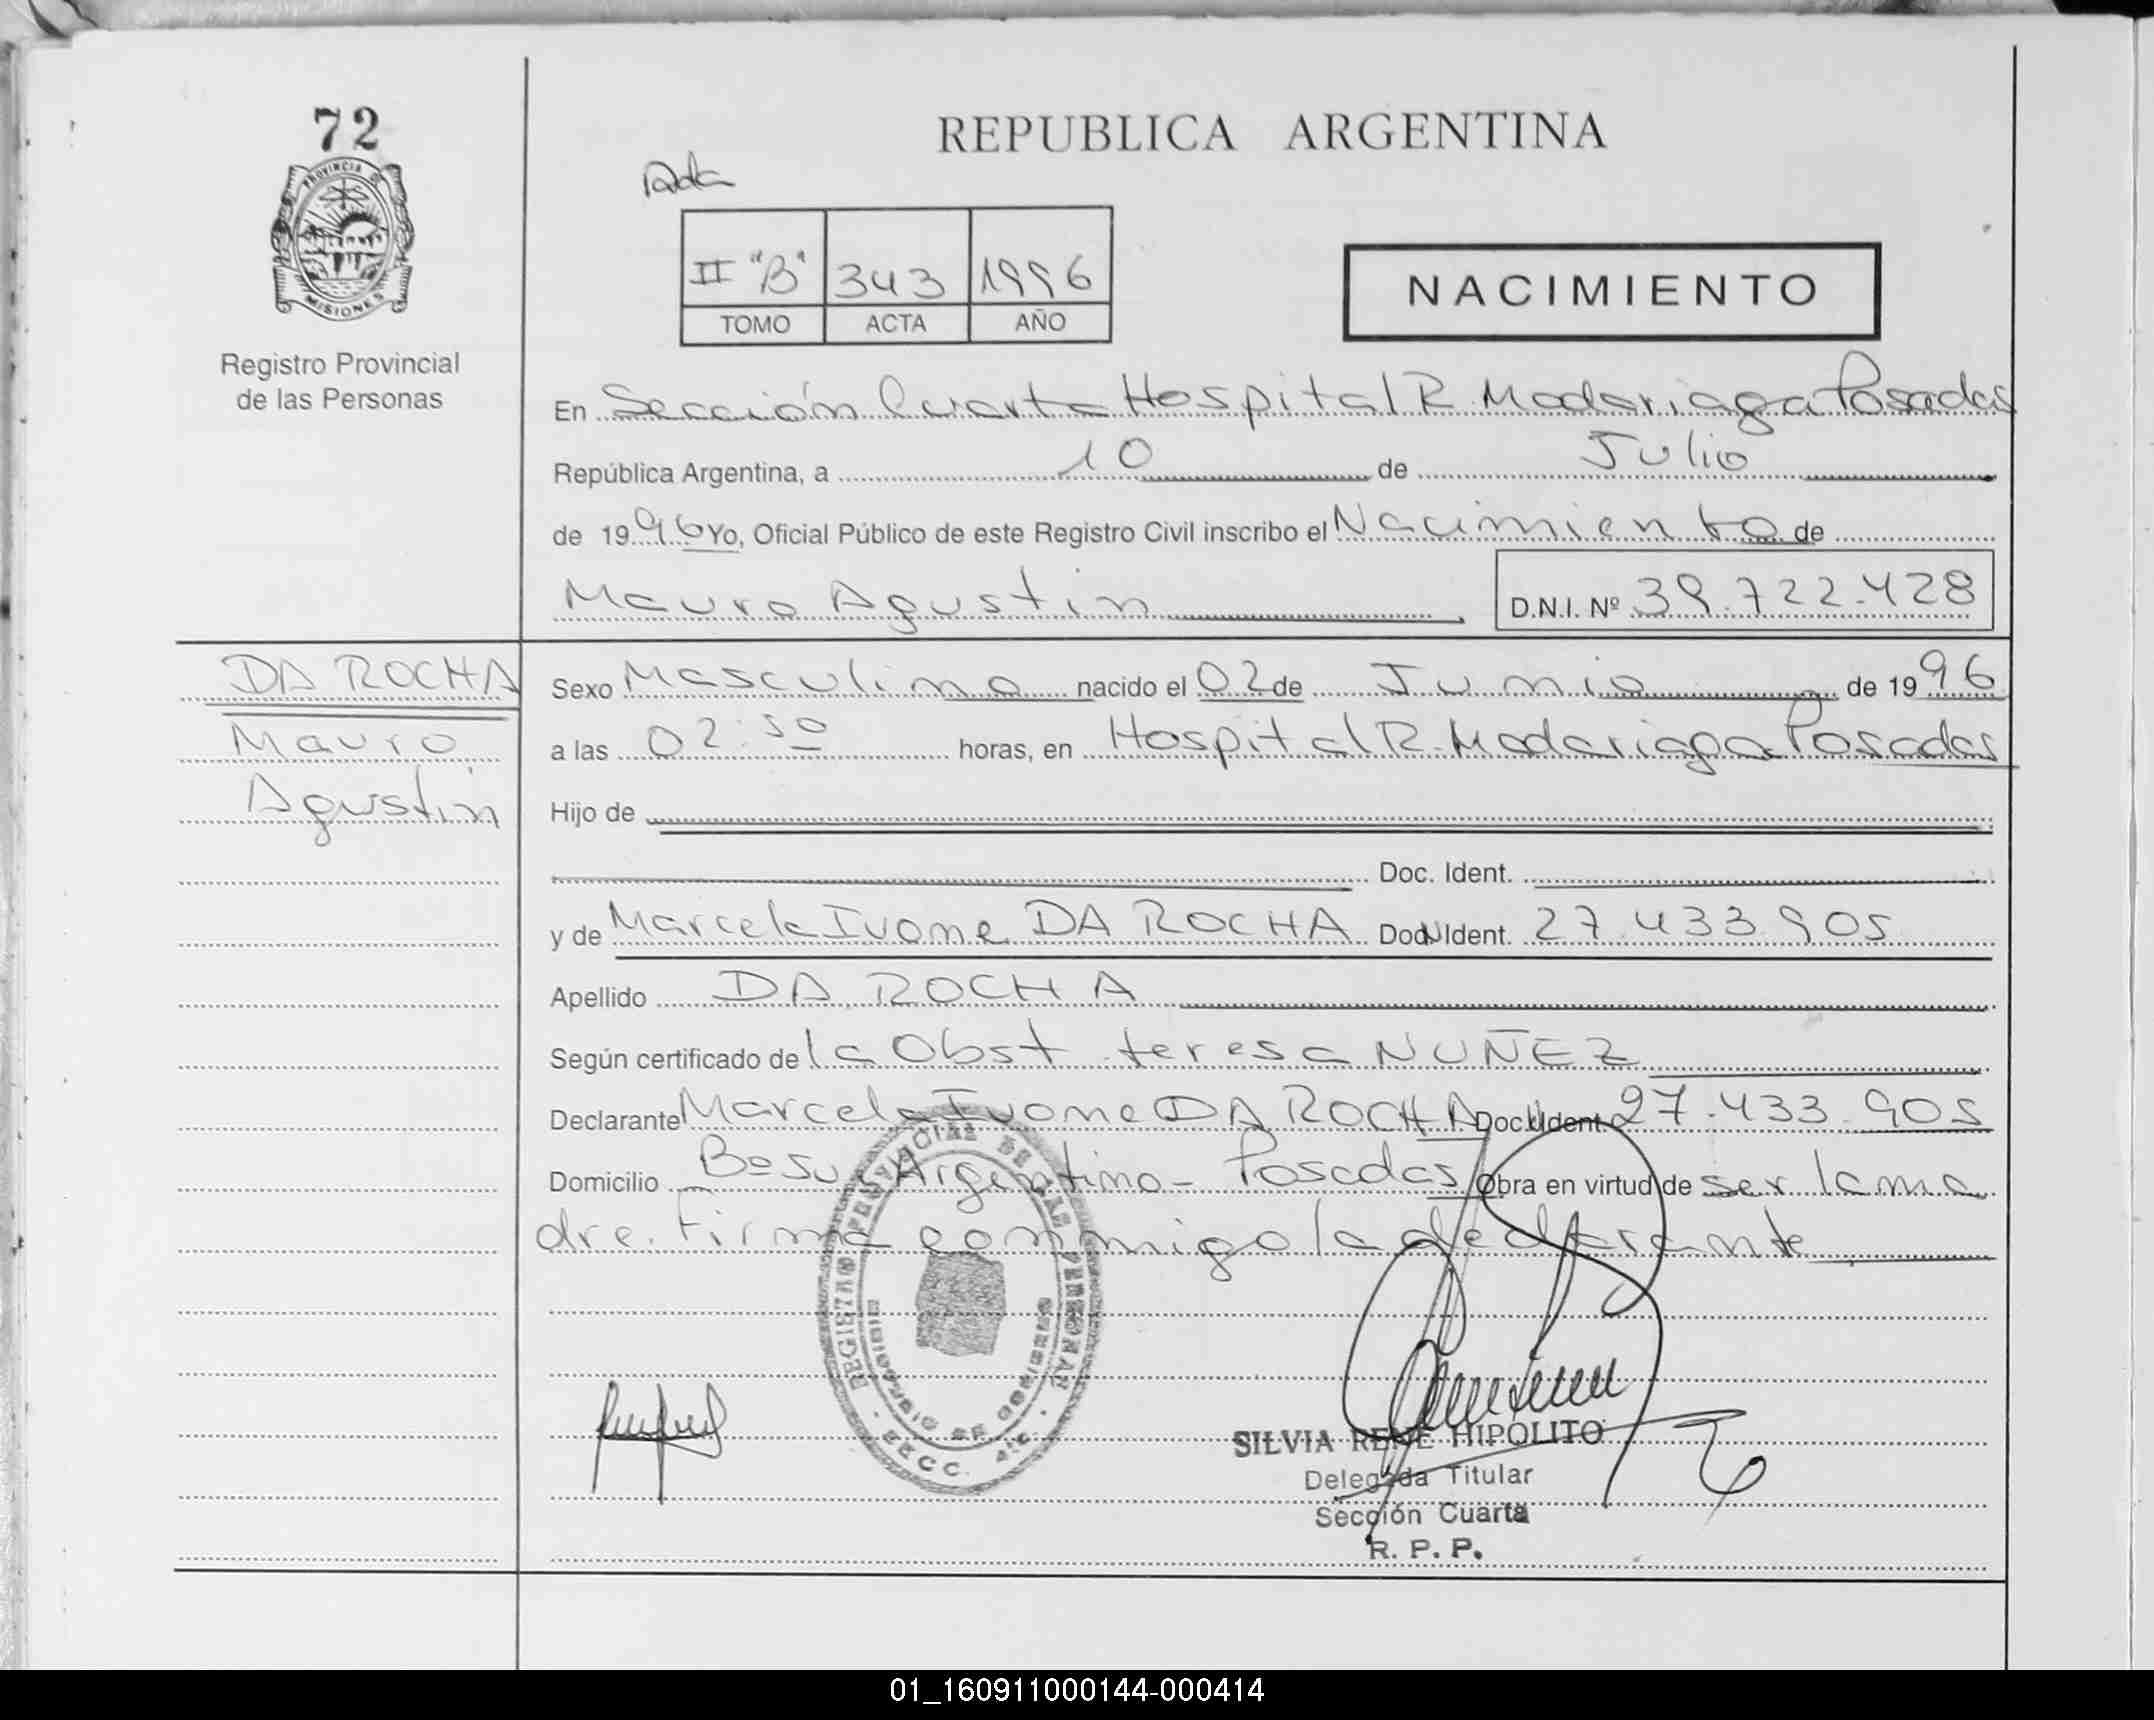 72
PROVINCIA D
MISIONES
Registro Provincial
de las Personas
REPUBLICA ARGENTINA
II "B" 343 1996
TOMO ACTA AÑO
NACIMIENTO
En Sección Cuarta Hospital R. Madariaga Posadas
República Argentina, a 10 de Julio
de 1996 Yo, Oficial Público de este Registro Civil inscribo el Nacimiento de
Mauro Agustin D.N.I. Nº 39.722.428
DA ROCHA
Mauro
Agustin
Sexo Masculino nacido el 02 de Junio de 1996
a las 02:50 horas, en Hospital R. Madariaga Posadas
Hijo de
Doc. Ident.
y de Marcela Ivone DA ROCHA Doc. Ident. 27.433.905
Apellido DA ROCHA
Según certificado de la Obst. teresa NUÑEZ
Declarante Marcela Ivone DA ROCHA Doc. Ident. 27.433.905
Domicilio Bº Sur Argentino - Posadas Obra en virtud de ser la ma
dre. Firma conmigo la declarante
REGISTRO PROVINCIAL DE LAS PERSONAS
SECC. 4ta
SILVIA RENE HIPOLITO
Delegada Titular
Sección Cuarta
R. P. P.
01_160911000144-000414